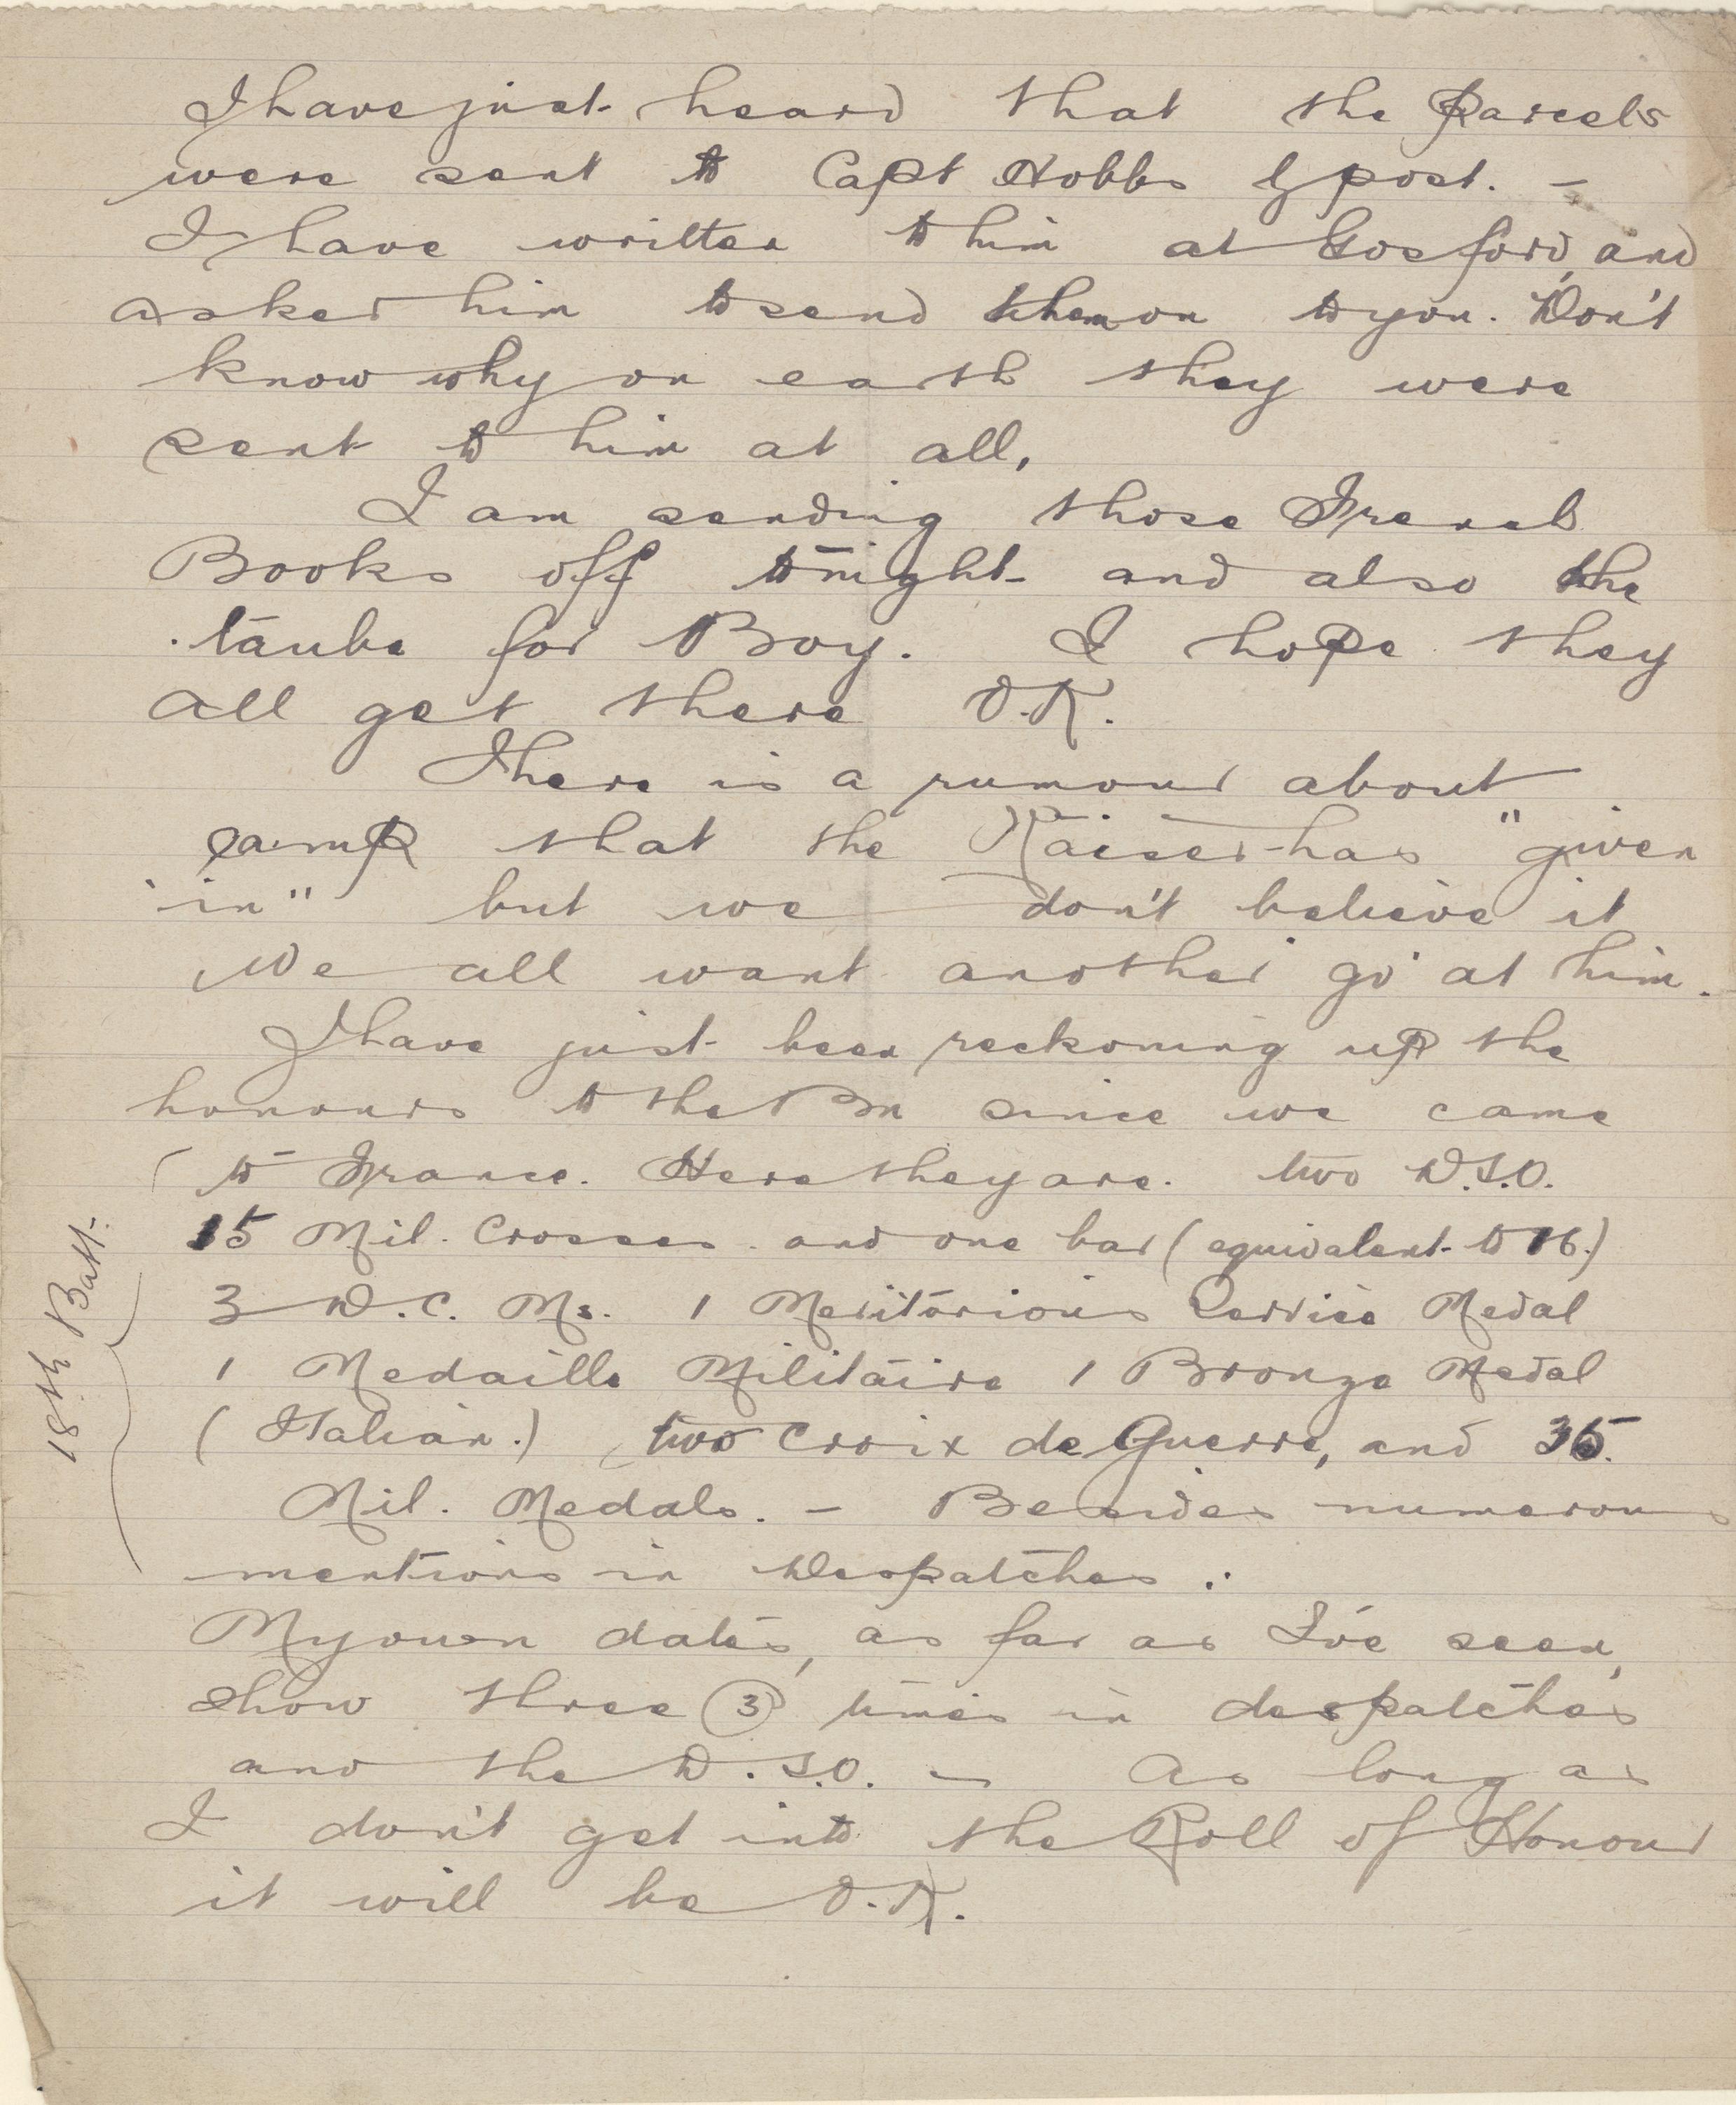 I have just heard that the Parcels
were sent to Capt Hobbs by post. —
I have written to him at Gosford, and
asked him to send them on to you. Don't
know why on earth they were
sent to him at all.
I am sending those French
Books off tonight and also the
taube for Boy. I hope they
all get there O.K.
There is a rumour about
camp that the Kaiser has "given
in" but we don't believe it
We all want another go at him.
I have just been reckoning up the
honours to the Bn since we came
to France. Here they are. two D.S.O.
15 Mil. Crosses and one bar (equivalent to 16.)
3 D.C. Ms. 1 Meritorious Service Medal
1 Medaille Militaire 1 Bronze Medal
(Italian.) two Croix de Guerre, and 35.
Mil. Medals. — Besides numerous
mentions in Despatches.
18th Batt.
My own dates, as far as I've seen,
show three (3) times in despatches
and the D.S.O. — As long as
I don't get into the Roll of Honour
it will be O.K.